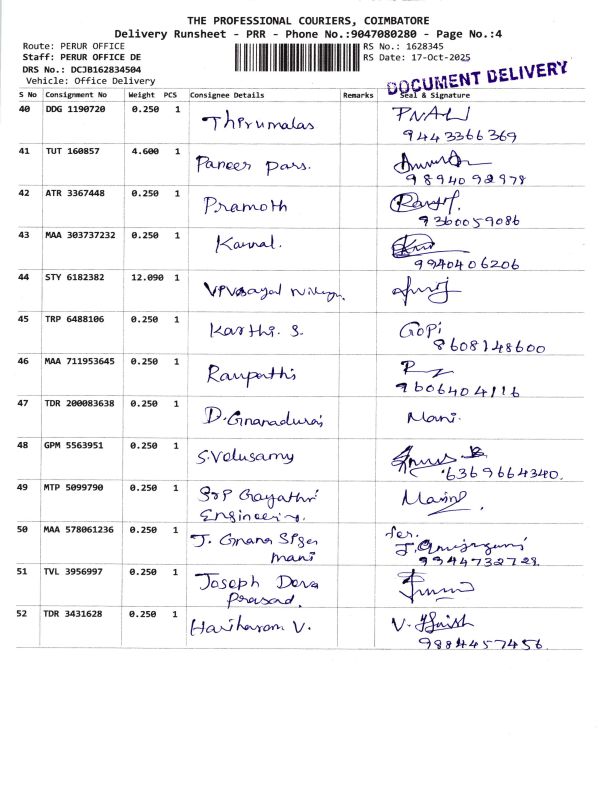 THE PROFESSIONAL COURIERS, COIMBATORE
Delivery Runsheet - PRR - Phone No.:9047080280 - Page No.:4
Route: PERUR OFFICE
RS No.: 1628345
Staff: PERUR OFFICE DE
RS Date: 17-Oct-2025
DRS No.: DCJB162834504
Vehicle: Office Delivery
DOCUMENT DELIVERY
S No Consignment No Weight PCS Consignee Details Remarks Seal & Signature
40 DDG 1190720 0.250 1 Thirumalas
9443366369
41 TUT 160857 4.600 1 Paneer Pars.
9894092978
42 ATR 3367448 0.250 1 Pramoth
9360059086
43 MAA 303737232 0.250 1 Kamal.
9940406206
44 STY 6182382 12.090 1
45 TRP 6488106 0.250 1 Karthi. S. Gopi
8608148600
46 MAA 711953645 0.250 1
9606404116
47 TDR 200083638 0.250 1 D. Gnanadurai Mani.
48 GPM 5563951 0.250 1 S. Velusamy
6369664340.
49 MTP 5099790 0.250 1 Gayathri
Engineering.
50 MAA 578061236 0.250 1 J. Gnana
mani
9944732728.
51 TVL 3956997 0.250 1 Joseph Deva
Prasad.
52 TDR 3431628 0.250 1 Hariharam V.
9884457456.